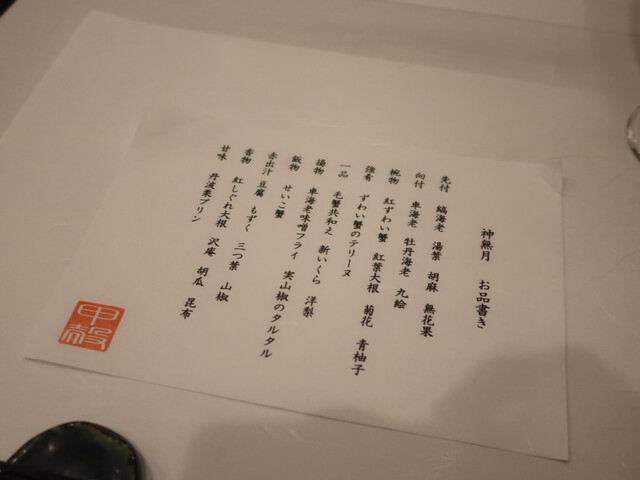 神無月 お品書き
先付 縞海老 湯葉 胡麻 無花果
向付 車海老 牡丹海老 九絵
椀物 紅ずわい蟹 紅葉大根 菊花 青柚子
強肴 ずわい蟹のテリーヌ
一品 毛蟹共和え 新いくら 洋梨
揚物 車海老味噌フライ 実山椒のタルタル
飯物 せいこ蟹
赤出汁 豆腐 もずく 三つ葉 山椒
香物 紅しぐれ大根 沢庵 胡瓜 昆布
甘味 丹波栗プリン
甲殻